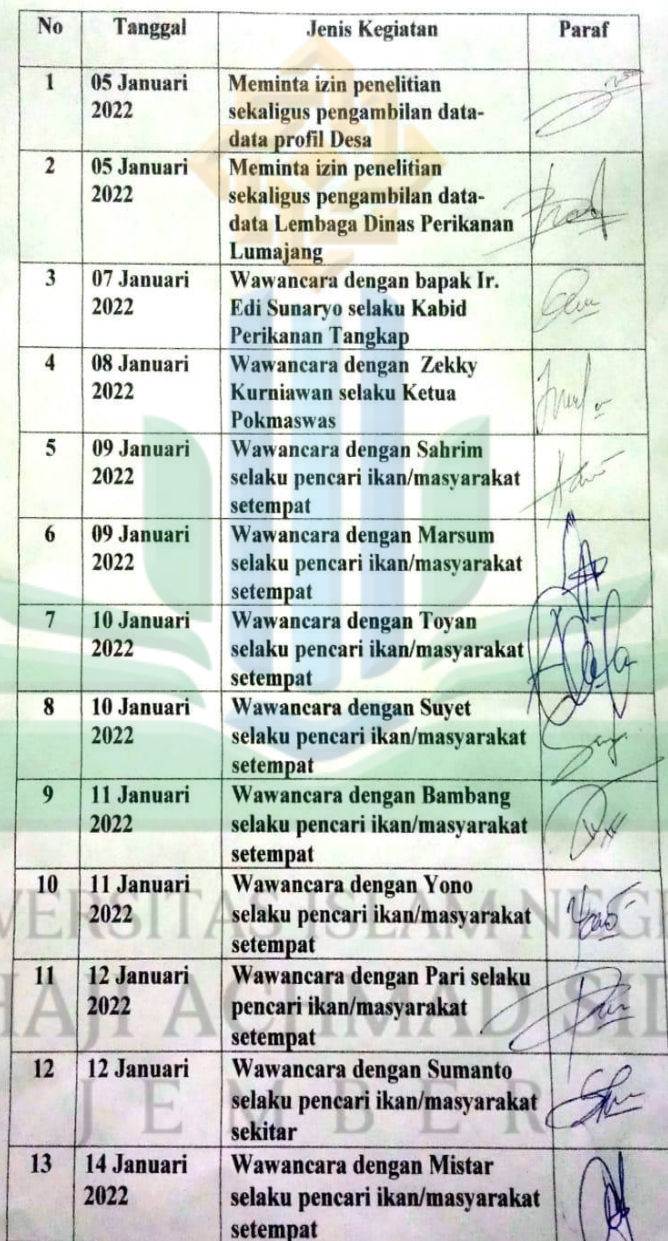 No Tanggal Jenis Kegiatan Paraf
1 05 Januari Meminta izin penelitian
2022 sekaligus pengambilan data-
data profil Desa
2 05 Januari Meminta izin penelitian
2022 sekaligus pengambilan data-
data Lembaga Dinas Perikanan
Lumajang
3 07 Januari Wawancara dengan bapak Ir.
2022 Edi Sunaryo selaku Kabid
Perikanan Tangkap
4 08 Januari Wawancara dengan Zekky
2022 Kurniawan selaku Ketua
Pokmaswas
5 09 Januari Wawancara dengan Sahrim
2022 selaku pencari ikan/masyarakat
setempat
6 09 Januari Wawancara dengan Marsum
2022 selaku pencari ikan/masyarakat
setempat
7 10 Januari Wawancara dengan Toyan
2022 selaku pencari ikan/masyarakat
setempat
8 10 Januari Wawancara dengan Suyet
2022 selaku pencari ikan/masyarakat
setempat
9 11 Januari Wawancara dengan Bambang
2022 selaku pencari ikan/masyarakat
setempat
10 11 Januari Wawancara dengan Yono
2022 selaku pencari ikan/masyarakat
setempat
11 12 Januari Wawancara dengan Pari selaku
2022 pencari ikan/masyarakat
setempat
12 12 Januari Wawancara dengan Sumanto
selaku pencari ikan/masyarakat
sekitar
13 14 Januari Wawancara dengan Mistar
2022 selaku pencari ikan/masyarakat
setempat
JEMBER